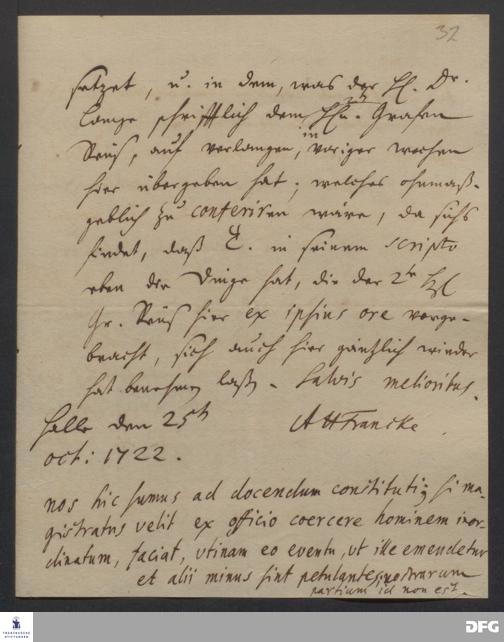 32
setzet, u. in dem, was der H. Dr.
Lange schrifftlich dem Hn. Grafen
Reuß, auf verlangen, in voriger wochen
hier übergeben hat; welches ohnmaß-
geblich zu conferiren wäre, da sichs
findet, daß in seinem scripto
eben die Dinge hat, die der
Gr. Reuß hier ex ipsius ore vorge-
bracht, sich auch hier gäntzlich wieder
hat benehmen laßen. Salvis melioribus.
Halle den 25th AHFrancke.
oct: 1722.
nos hic sumus ad docendum constituti; si ma-
gistratus velit ex officio coercere hominem inor-
dinatum, faciat, utinam eo eventu, ut ille emendetur
et alii minus sint petulantes; nostrarum
partium id non est.
FRANCKESCHE
STIFTUNGEN
DFG